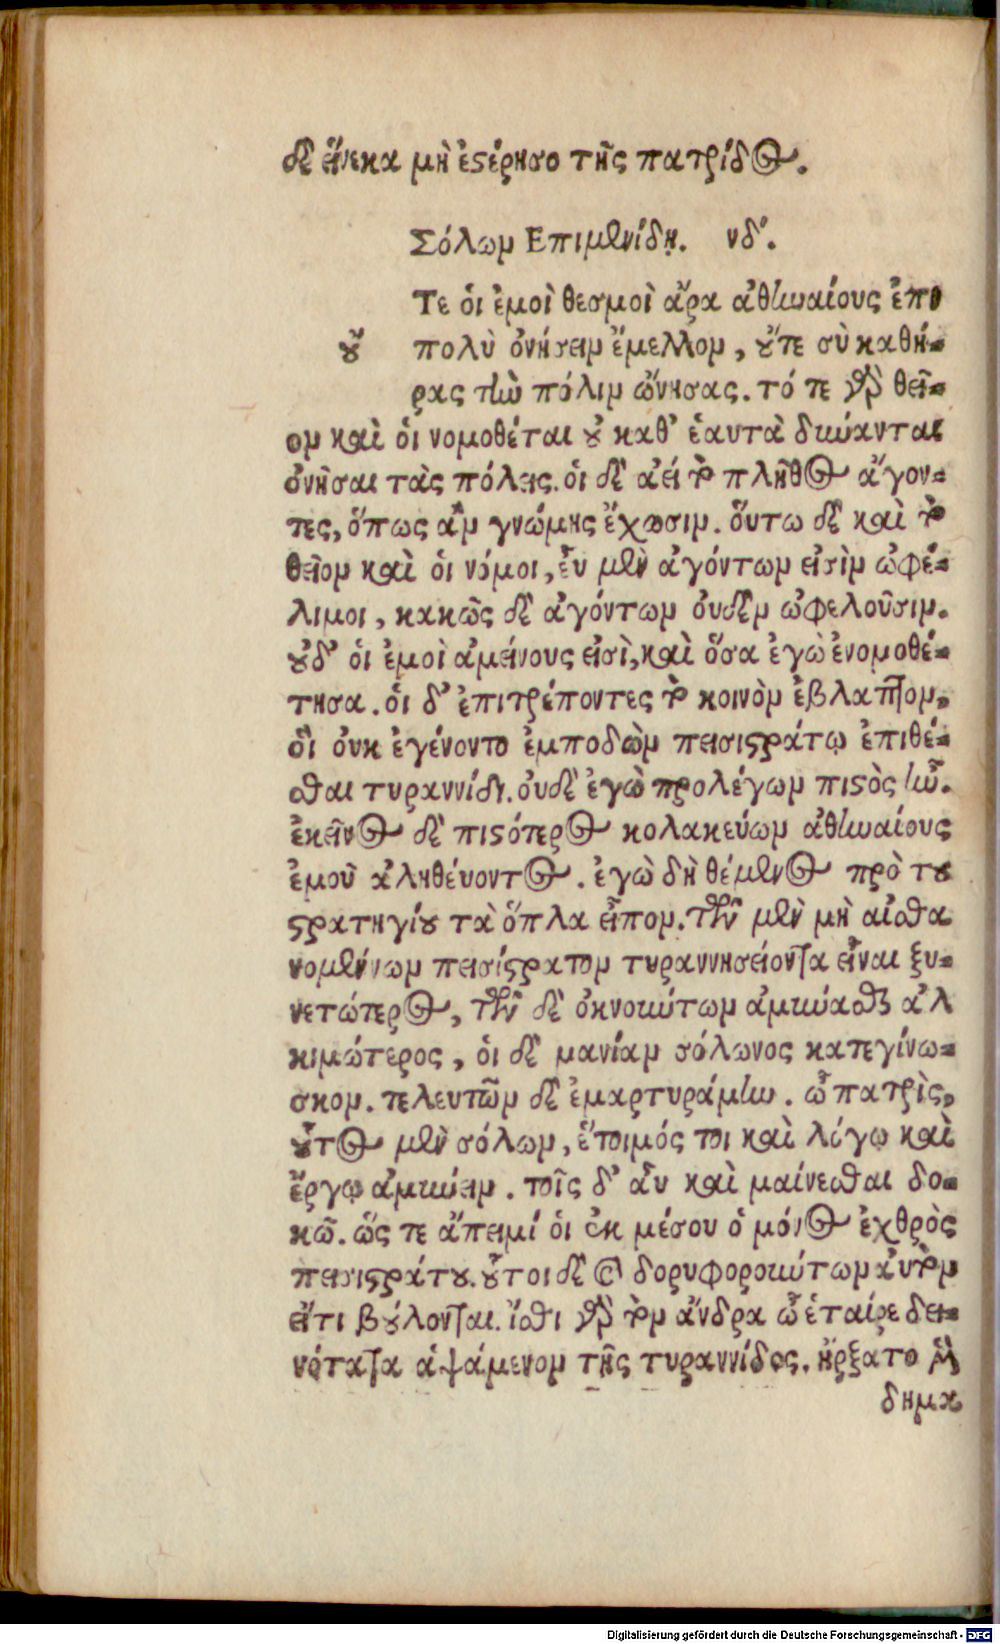 δὲ εἵνεκα μὴ ἐϛέρησο τῆς πατρίδος.
Σόλωμ Επιμενίδῃ. νδʹ.
Τε ὁι ἐμοὶ θεσμοὶ ἄρα ἀθηναίους ἐπὶ
ȣ̓ πολὺ ὀνήσειμ ἔμελλομ, ȣ̓́τε σὺ καθή-
ρας τὴν πόλιμ ὤνησας. τό τε γὰρ θεῖ-
ομ καὶ ὁι νομοθέται ȣ̓ καθ' ἑαυτὰ δύνανται
ὀνῆσαι τὰς πόλεις. ὁι δὲ ἀεί τὸ πλῆθος ἄγον-
τες, ὅπως ἂμ γνώμης ἔχωσιμ. ὅυτω δὲ καὶ τὸ
θεῖομ καὶ ὁι νόμοι, ἐὺ μὲν ἀγόντωμ εἰσὶμ ὠφέ-
λιμοι, κακῶς δὲ ἀγόντωμ ὀυδὲμ ὠφελοῦσιμ.
ȣ̓δ' ὁι ἐμοὶ ἀμείνους εἰσὶ, καὶ ὅσα ἐγὼ ἐνομοθέ-
τησα. ὁι δ' ἐπιτρέποντες τὸ κοινὸμ ἔβλαπτομ,
ὃι ὀυκ ἐγένοντο ἐμποδὼμ πεισιϛράτῳ ἐπιθέ-
σθαι τυραννίδι. ὀυδὲ ἐγὼ προλέγωμ πιϛὸς ἦν.
ἐκεῖνος δὲ πιϛότερος κολακεύωμ ἀθηναίους
ἐμοῦ ἀληθέυοντος. ἐγὼ δὴ θέμενος πρὸ τȣ
ϛρατηγίȣ τὰ ὅπλα εἶπομ. τῶν μὲν μὴ αἰσθα
νομένωμ πεισίϛρατομ τυραννησείοντα εἶναι ξυ-
νετώτερος, τῶν δὲ ὀκνούτωμ ἀμύνασθαι ἀλ
κιμώτερος, ὁι δὲ μανίαμ σόλωνος κατεγίνω-
σκομ. τελευτῶμ δὲ ἐμαρτυράμην. ὦ πατρὶς,
ȣ̔͂τος μὲν σόλωμ, ἕτοιμός τοι καὶ λόγῳ καὶ
ἔργῳ ἀμύνειμ. τοῖς δ' ἀῦ καὶ μαίνεσθαι δο-
κῶ. ὥς τε ἄπειμί ὁι ἐκ μέσου ὁ μόνος ἐχθρὸς
πεισιϛράτȣ. ȣ̔͂τοι δὲ καὶ δορυφορούτωμ ἀυτὸμ
εἴτι βȣ́λονται. ἴσθι γὰρ τὸμ ἄνδρα ὦ ἑταίρε δει-
νότατα ἁψάμενομ τῆς τυραννίδος. ἤρξατο μὲν
δημα